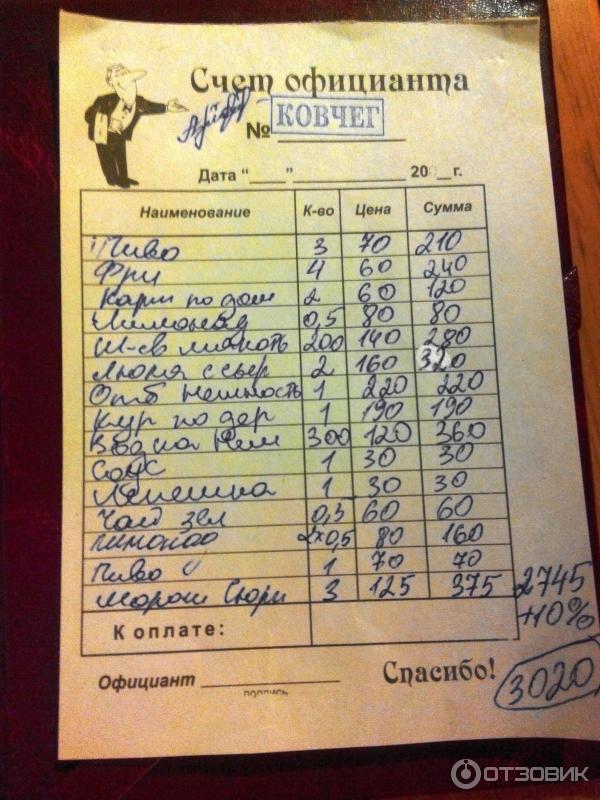 Счет официанта
№ КОВЧЕГ
Дата “___” ____________ 20 __ г.
Наименование К-во Цена Сумма
Пиво 3 70 210
Фри 4 60 240
Карт по дом 2 60 120
Лимонад 0,5 80 80
Ш-св мякоть 200 140 280
Люля с сыр 2 160 320
Отб нежность 1 220 220
Кур по дер 1 190 190
Водка Нем 300 120 360
Соус 1 30 30
Лепешка 1 30 30
Чай зел 0,5 60 60
Лимонад 2x0,5 80 160
Пиво 1 70 70
Морож Сюри 3 125 375
2745
+10%
К оплате:
Официант ____________ Спасибо!
подпись
3020
ОТЗОВИК